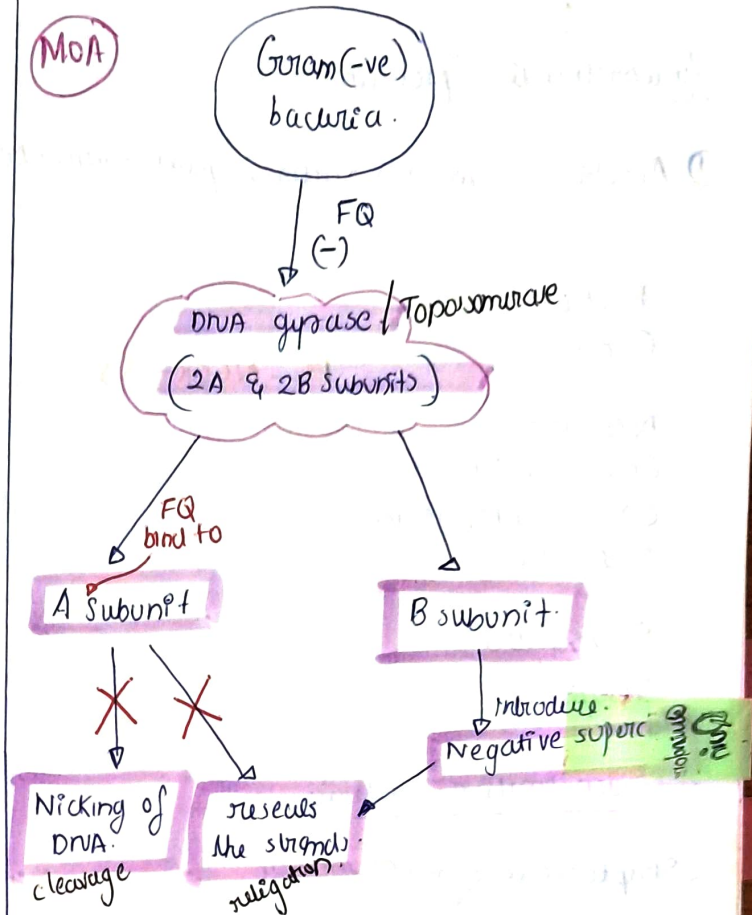 MOA
Gram(-ve)
bacteria.
FQ
(-)
DNA gyrase / Topoisomerase
(2A & 2B Subunits)
FQ
bind to
A Subunit
B subunit.
Introduce.
Negative superc
Nicking of
DNA.
cleavage
reseals
the strands.
religation.